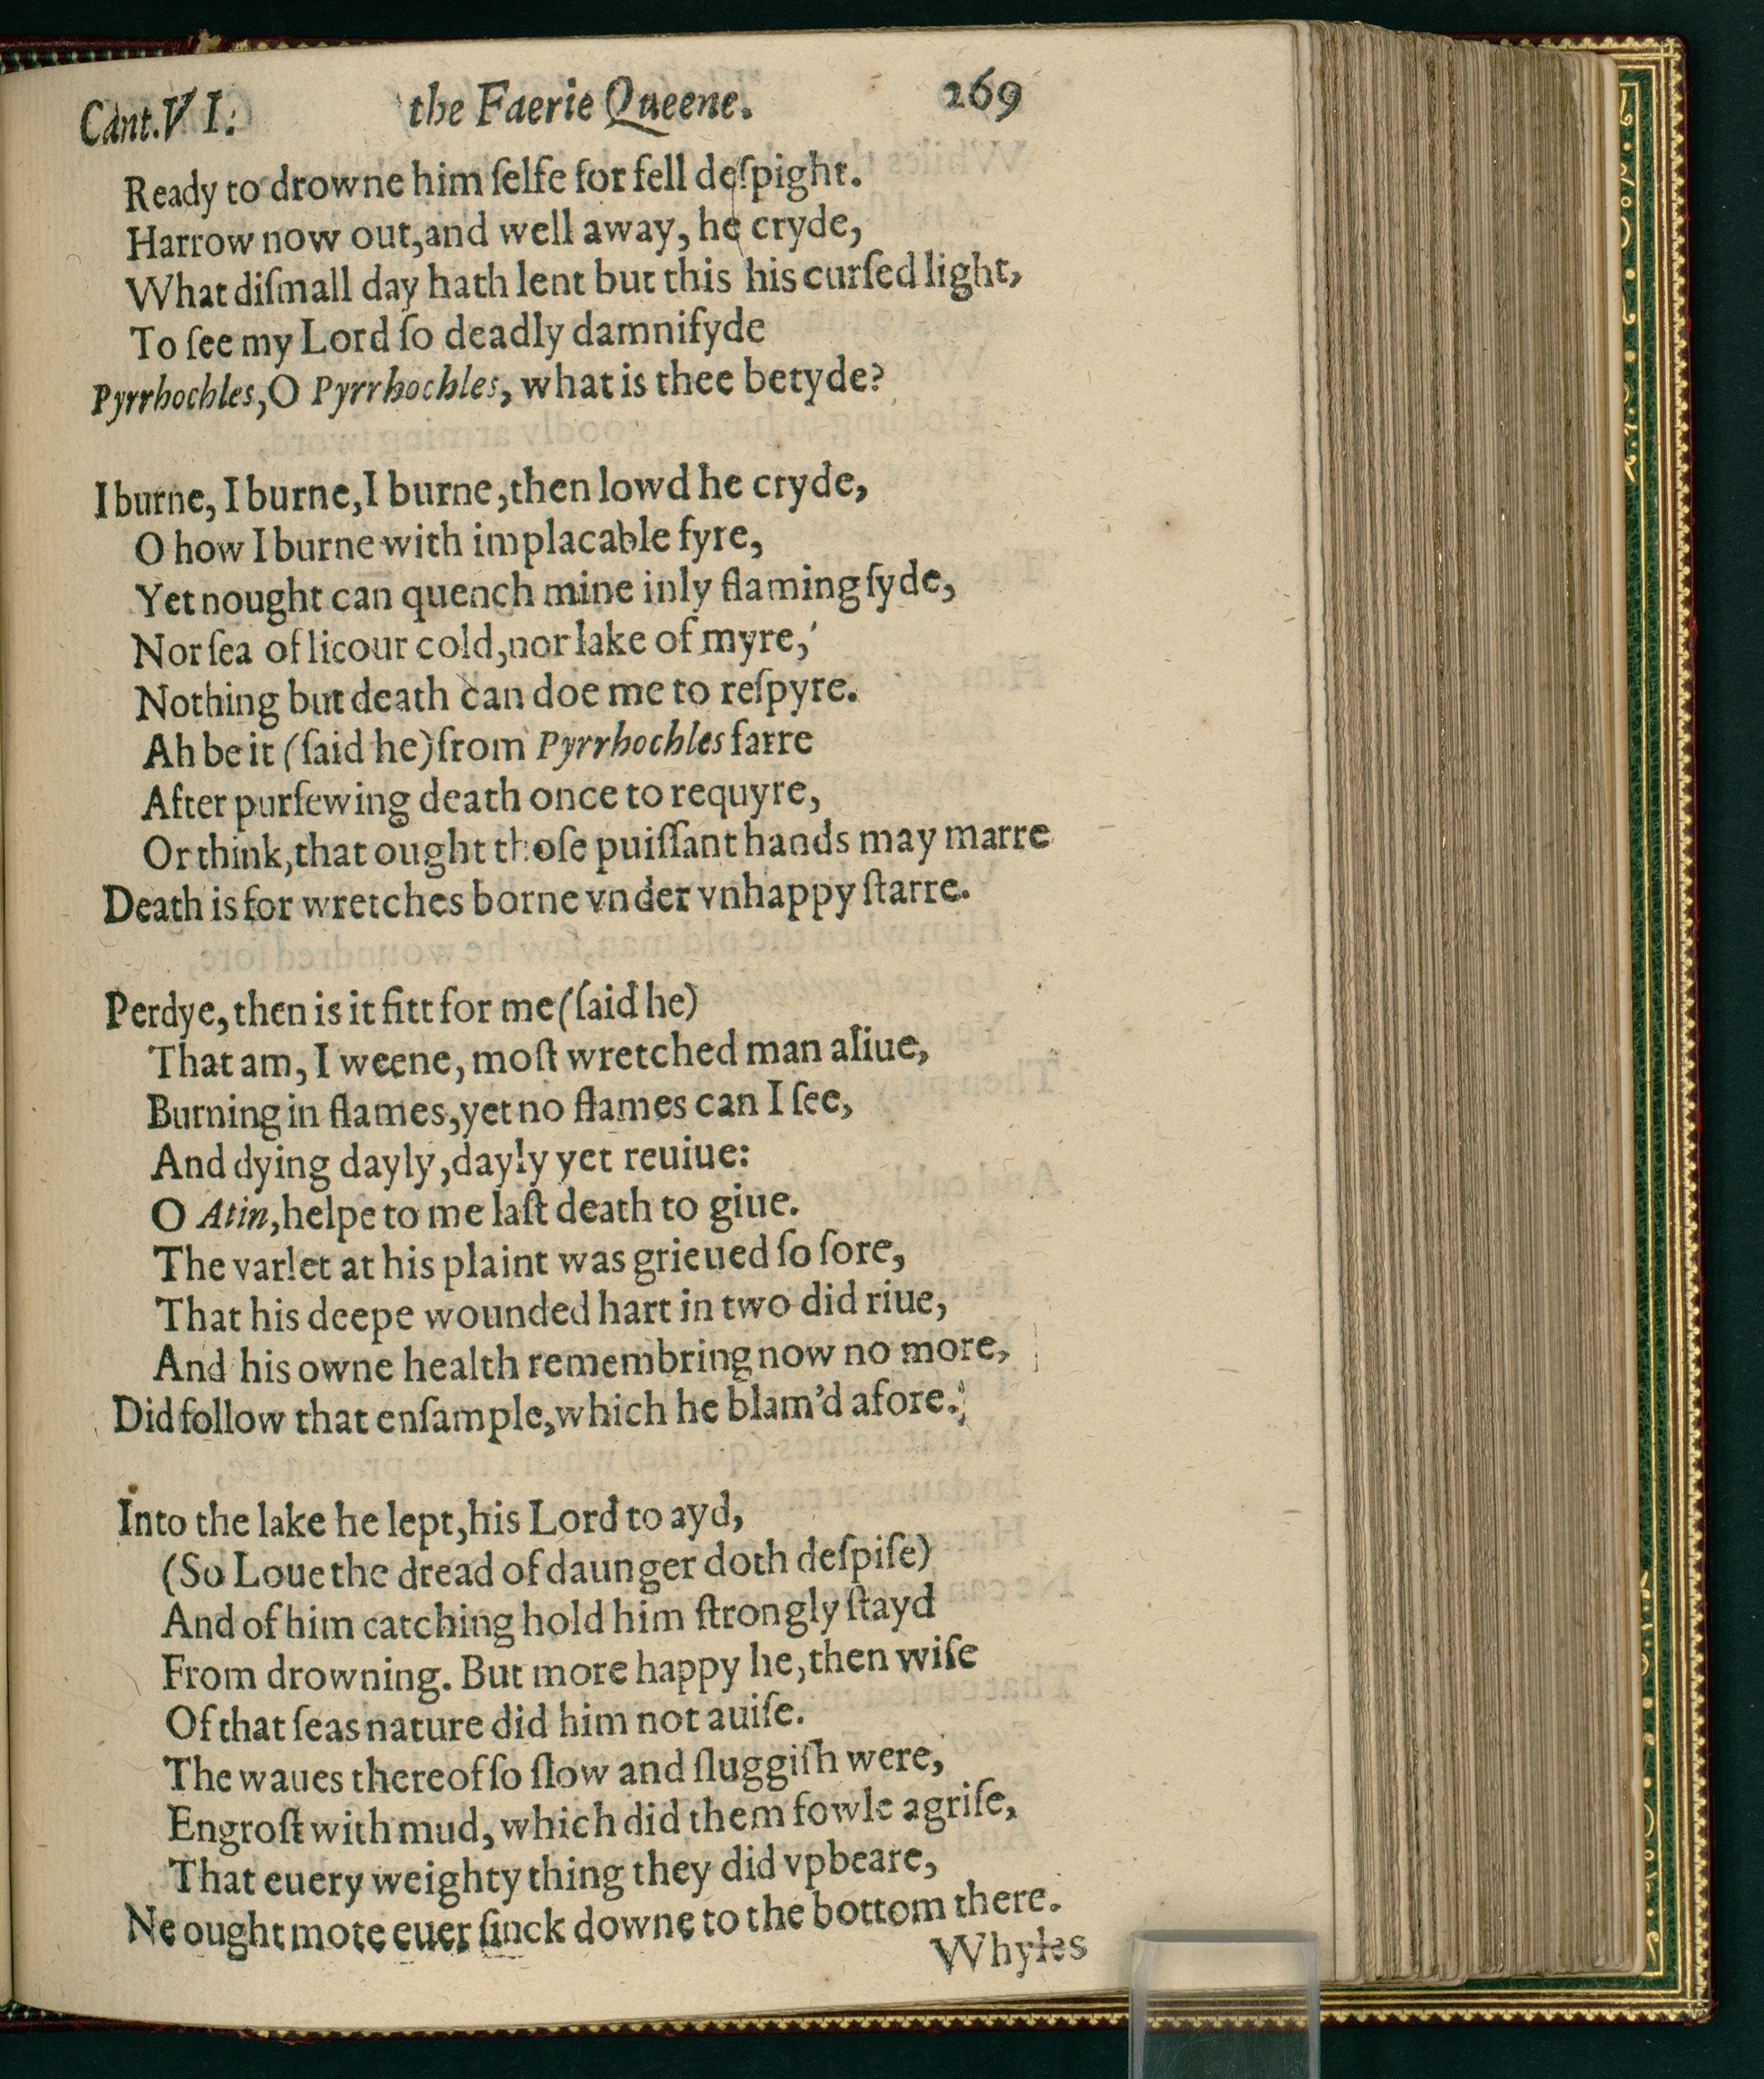 Cant. VI. the Faerie Queene. 269
Ready to drowne him ſelfe for fell deſpight.
Harrow now out, and well away, he cryde,
What diſmall day hath lent but this his curſed light,
To ſee my Lord ſo deadly damnifyde
Pyrrhochles, O Pyrrhochles, what is thee betyde?
I burne, I burne, I burne, then lowd he cryde,
O how I burne with implacable fyre,
Yet nought can quench mine inly flaming ſyde,
Nor ſea of licour cold, nor lake of myre,
Nothing but death can doe me to reſpyre.
Ah be it (ſaid he) from Pyrrhochles farre
After purſewing death once to requyre,
Or think, that ought thoſe puiſſant hands may marre
Death is for wretches borne vnder vnhappy ſtarre.
Perdye, then is it fitt for me (ſaid he)
That am, I weene, moſt wretched man aliue,
Burning in flames, yet no flames can I ſee,
And dying dayly, dayly yet reuiue:
O Atin, helpe to me laſt death to giue.
The varlet at his plaint was grieued ſo ſore,
That his deepe wounded hart in two did riue,
And his owne health remembring now no more,
Did follow that enſample, which he blam'd afore.
Into the lake he lept, his Lord to ayd,
(So Loue the dread of daunger doth deſpiſe)
And of him catching hold him ſtrongly ſtayd
From drowning. But more happy he, then wiſe
Of that ſeas nature did him not auiſe.
The waues thereof ſo ſlow and ſluggiſh were,
Engroſt with mud, which did them fowle agriſe,
That euery weighty thing they did vpbeare,
Ne ought mote euer ſinck downe to the bottom there.
Whyles